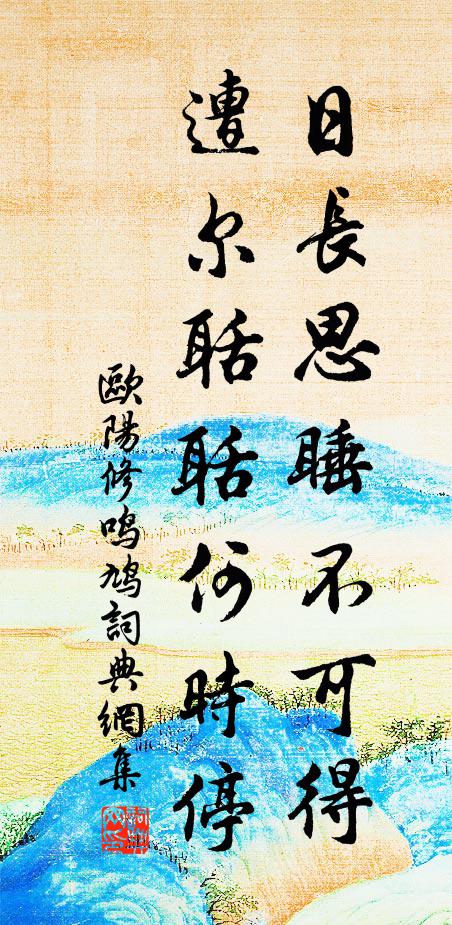 日長思睡不可得
遭尔聒聒何時停
歐陽修鳴鳩詞典網集